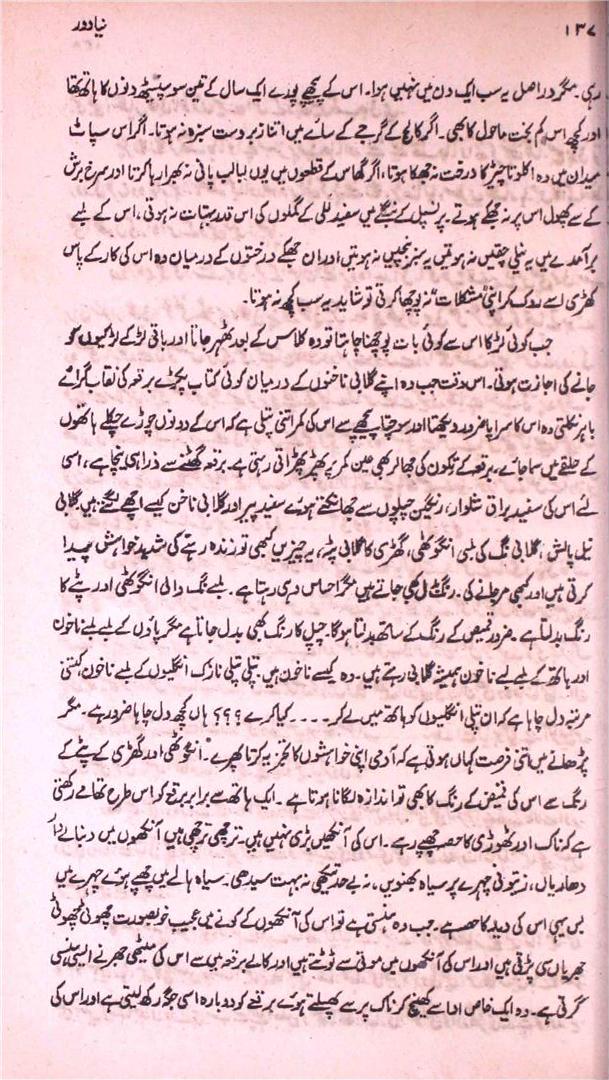 ۱۳۷
نیا دور
رہی۔ مگر دراصل یہ سب ایک دن میں نہیں ہوا۔ اس کے پیچھے پورے ایک سال کے تین سو پینسٹھ دنوں کا ہاتھ تھا
اور کچھ اس کم بخت ماحول کا بھی۔ اگر کالج کے گرجے کے سائے میں اتنا زبردست سبزہ نہ ہوتا۔ اگر اس سپاٹ
میدان میں وہ اکلوتا چیڑ کا درخت نہ جھکا ہوتا، اگر گھاس کے قطعوں میں یوں لبالب پانی نہ بھرا رہا کرتا اور سرخ برش
کے سے پھول اس پر نہ جھکے ہوتے۔ پرنسپل کے بنگلے میں سفید للی کے گملوں کی اس قدر بہتات نہ ہوتی، اس کے لمبے
برآمدے میں یہ نیلی چقیں نہ ہوتیں یہ سبز بنچیں نہ ہوتیں اور ان جھکے درختوں کے درمیان وہ اس کی کار کے پاس
کھڑی اسے روک کر اپنی "مشکلات" نہ پوچھا کرتی تو شاید یہ سب کچھ نہ ہوتا۔
جب کوئی لڑکا اس سے کوئی بات پوچھنا چاہتا تو وہ کلاس کے بعد ٹھہر جاتا اور باقی لڑکے لڑکیوں کو
جانے کی اجازت ہوتی۔ اس وقت جب وہ اپنے گلابی ناخنوں کے درمیان کوئی کتاب پکڑے برقعہ کی نقاب گرائے
باہر نکلتی وہ اس کا سراپا ضرور دیکھتا اور سوچتا پیچھے سے اس کی کمر اتنی پتلی ہے کہ اس کے دونوں چوڑے چکلے ہاتھوں
کے حلقے میں سما جائے، برقعہ کے تکون کی جھالر بھی عین کمر پر پھڑپھڑاتی رہتی ہے۔ برقعہ گھٹنے سے ذرا ہی نیچا ہے، اسی
لئے اس کی سفید براق شلوار، رنگین چپلوں سے جھانکتے ہوئے سفید پیر اور گلابی ناخن کیسے اچھے لگتے ہیں۔ گلابی
نیل پالش، گلابی نگ کی لمبی انگوٹھی، گھڑی کا گلابی پٹہ، یہ چیزیں کبھی تو زندہ رہنے کی شدید خواہش پیدا
کرتی ہیں اور کبھی مر جانے کی۔ رنگ بدل بھی جاتے ہیں مگر احساس وہی رہتا ہے۔ لمبے نگ والی انگوٹھی اور پٹے کا
رنگ بدلتا ہے۔ ضرور قمیض کے رنگ کے ساتھ بدلتا ہوگا۔ چپل کا رنگ بھی بدل جاتا ہے مگر پاؤں کے لمبے لمبے ناخون
اور ہاتھ کے لمبے لمبے ناخون ہمیشہ گلابی رہتے ہیں۔ وہ کیسے ناخون ہیں۔ پتلی پتلی نازک انگلیوں کے لمبے ناخون، کتنی
مرتبہ دل چاہا ہے کہ ان پتلی انگلیوں کو ہاتھ میں لے کر۔۔۔۔ کیا کرے؟؟؟ ہاں کچھ دل چاہا ضرور ہے۔ مگر
پڑھانے میں اتنی فرصت کہاں ہوتی ہے کہ آدمی اپنی خواہشوں کا تجزیہ کرتا پھرے۔ انگوٹھی اور گھڑی کے پٹے کے
رنگ سے اس کی قمیض کے رنگ کا بھی تو اندازہ لگانا ہوتا ہے۔ ایک ہاتھ سے برابر برقعے کو اس طرح تھامے رکھتی
ہے کہ ناک اور ٹھوڑی کا حصہ چھپے رہے۔ اس کی آنکھیں بڑی نہیں ہیں۔ ترچھی ترچھی ہیں آنکھوں میں دنبالے دار
دھاریاں، زیتونی چہرے پر سیاہ بھنویں، نہ بے حد تیکھی نہ بہت سیدھی۔ سیاہ ہالے میں چھپے ہوئے چہرے میں
بس یہی اس کی دید کا حصہ ہے۔ جب وہ ہنستی ہے تو اس کی آنکھوں کے کونے میں عجیب خوبصورت چھوٹی چھوٹی
جھریاں سی پڑتی ہیں اور اس کی آنکھوں میں موتی سے ٹوٹتے ہیں اور کالے برقعہ میں سے اس کی میٹھی جھرنے ایسی ہنسی
گرتی ہے۔ وہ ایک خاص ادا سے کھینچ کر ناک پر سے پھسلتے ہوئے برقعے کو دوبارہ اسی جگہ رکھ لیتی ہے اور اس کی